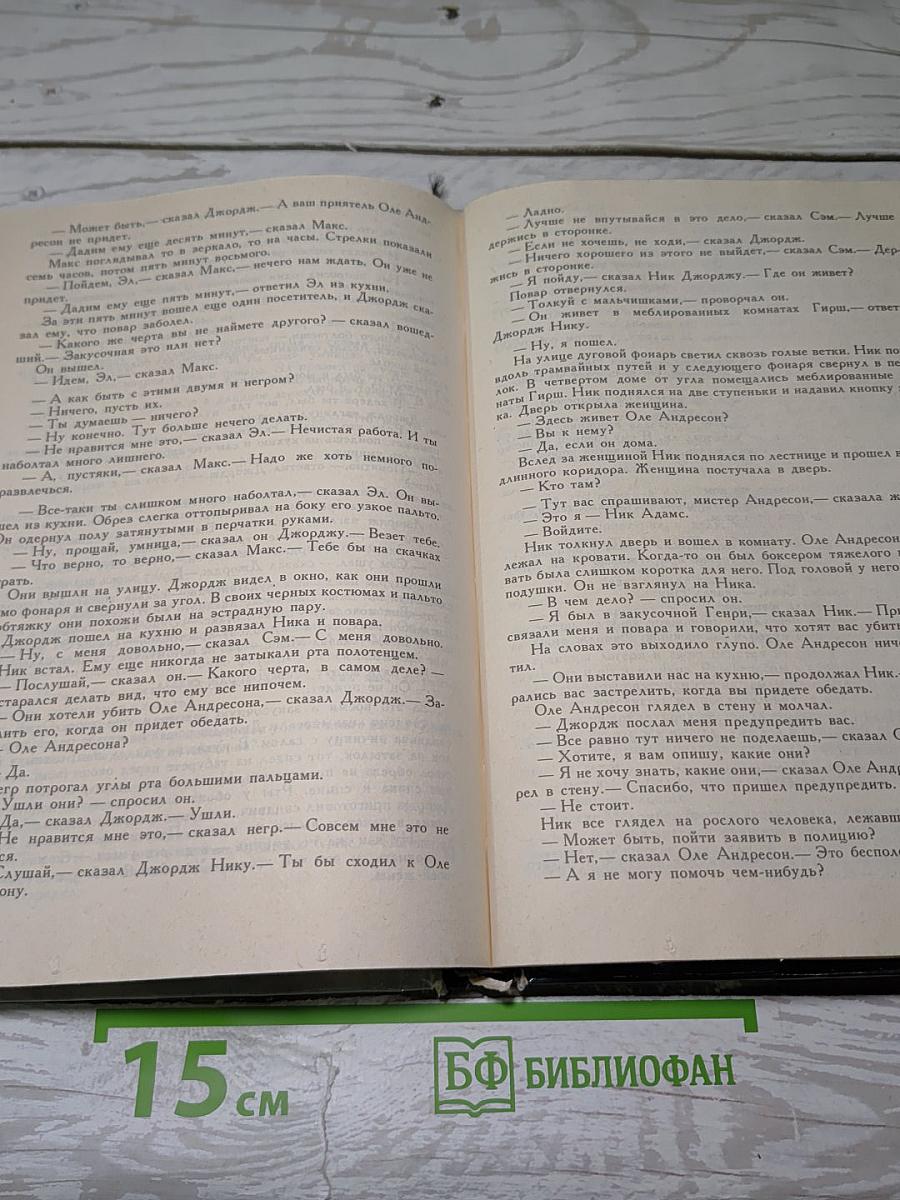 — Может быть,— сказал Джордж.— А ваш приятель Оле Анд-
ресон не придет.
— Дадим ему еще десять минут,— сказал Макс.
Макс поглядывал то в зеркало, то на часы. Стрелки показали
семь часов, потом пять минут восьмого.
— Пойдем, Эл,— сказал Макс,— нечего нам ждать. Он уже не
придет.
— Дадим ему еще пять минут,— ответил Эл из кухни.
За эти пять минут вошел еще один посетитель, и Джордж ска-
зал ему, что повар заболел.
— Какого же черта вы не наймете другого? — сказал вошед-
ший.— Закусочная это или нет?
Он вышел.
— Идем, Эл,— сказал Макс.
— А как быть с этими двумя и негром?
— Ничего, пусть их.
— Ты думаешь — ничего?
— Ну конечно. Тут больше нечего делать.
— Не нравится мне это,— сказал Эл.— Нечистая работа. И ты
наболтал много лишнего.
— А, пустяки,— сказал Макс.— Надо же хоть немного по-
развлечься.
— Все-таки ты слишком много наболтал,— сказал Эл. Он вы-
шел из кухни. Обрез слегка оттопыривал на боку его узкое пальто.
Он одернул полу затянутыми в перчатки руками.
— Ну, прощай, умница,— сказал он Джорджу.— Везет тебе.
— Что верно, то верно,— сказал Макс.— Тебе бы на скачках
грать.
Они вышли на улицу. Джордж видел в окно, как они прошли
мо фонаря и свернули за угол. В своих черных костюмах и пальто
обтяжку они похожи были на эстрадную пару.
Джордж пошел на кухню и развязал Ника и повара.
— Ну, с меня довольно,— сказал Сэм.— С меня довольно.
Ник встал. Ему еще никогда не затыкали рта полотенцем.
— Послушай,— сказал он.— Какого черта, в самом деле? —
старался делать вид, что ему все нипочем.
— Они хотели убить Оле Андресона,— сказал Джордж.— За-
лить его, когда он придет обедать.
— Оле Андресона?
Да.
егр потрогал углы рта большими пальцами.
Ушли они? — спросил он.
Да,— сказал Джордж.— Ушли.
Не нравится мне это,— сказал негр.— Совсем мне это не
ся.
Слушай,— сказал Джордж Нику.— Ты бы сходил к Оле
ону.
— Ладно.
— Лучше не впутывайся в это дело,— сказал Сэм.— Лучше
держись в сторонке.
— Если не хочешь, не ходи,— сказал Джордж.
— Ничего хорошего из этого не выйдет,— сказал Сэм.— Дер-
жись в сторонке.
— Я пойду,— сказал Ник Джорджу.— Где он живет?
Повар отвернулся.
— Толкуй с мальчишками,— проворчал он.
— Он живет в меблированных комнатах Гирш,— ответ
Джордж Нику.
— Ну, я пошел.
На улице дуговой фонарь светил сквозь голые ветки. Ник по
вдоль трамвайных путей и у следующего фонаря свернул в пе
лок. В четвертом доме от угла помещались меблированные
наты Гирш. Ник поднялся на две ступеньки и надавил кнопку
ка. Дверь открыла женщина.
— Здесь живет Оле Андресон?
— Вы к нему?
— Да, если он дома.
Вслед за женщиной Ник поднялся по лестнице и прошел в
длинного коридора. Женщина постучала в дверь.
— Кто там?
— Тут вас спрашивают, мистер Андресон,— сказала ж
— Это я — Ник Адамс.
— Войдите.
Ник толкнул дверь и вошел в комнату. Оле Андресон
лежал на кровати. Когда-то он был боксером тяжелого
вать была слишком коротка для него. Под головой у него
подушки. Он не взглянул на Ника.
— В чем дело? — спросил он.
— Я был в закусочной Генри,— сказал Ник.— При
связали меня и повара и говорили, что хотят вас убить
На словах это выходило глупо. Оле Андресон ниче
тил.
— Они выставили нас на кухню,— продолжал Ник.
рались вас застрелить, когда вы придете обедать.
Оле Андресон глядел в стену и молчал.
— Джордж послал меня предупредить вас.
— Все равно тут ничего не поделаешь,— сказал О
— Хотите, я вам опишу, какие они?
— Я не хочу знать, какие они,— сказал Оле Андр
рел в стену.— Спасибо, что пришел предупредить.
— Не стоит.
Ник все глядел на рослого человека, лежавш
— Может быть, пойти заявить в полицию?
— Нет,— сказал Оле Андресон.— Это бесполе
— А я не могу помочь чем-нибудь?
15 см
БФ БИБЛИОФАН